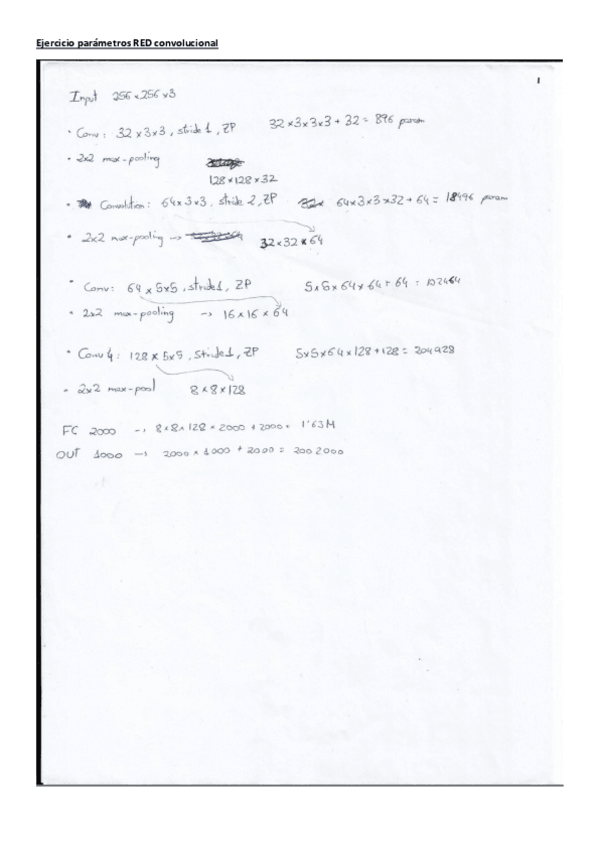 Ejercicio parámetros RED convolucional
1
Input 256x256x3
• Conv: 32x3x3, stride 1, ZP 32x3x3x3+32 = 896 param
• 2x2 max-pooling
128x128x32
• Convolution: 64x3x3, stride 2, ZP 64x3x3x32+64 = 18496 param
• 2x2 max-pooling -> 32x32x64
• Conv: 64x5x5, stride 1, ZP 5x5x64x64+64 = 102464
• 2x2 max-pooling -> 16x16x64
• Conv 4: 128x5x5, stride 1, ZP 5x5x64x128+128 = 204928
• 2x2 max-pool 8x8x128
FC 2000 -> 8x8x128x2000+2000 = 1'63M
OUT 1000 -> 2000x1000+2000 = 2002000